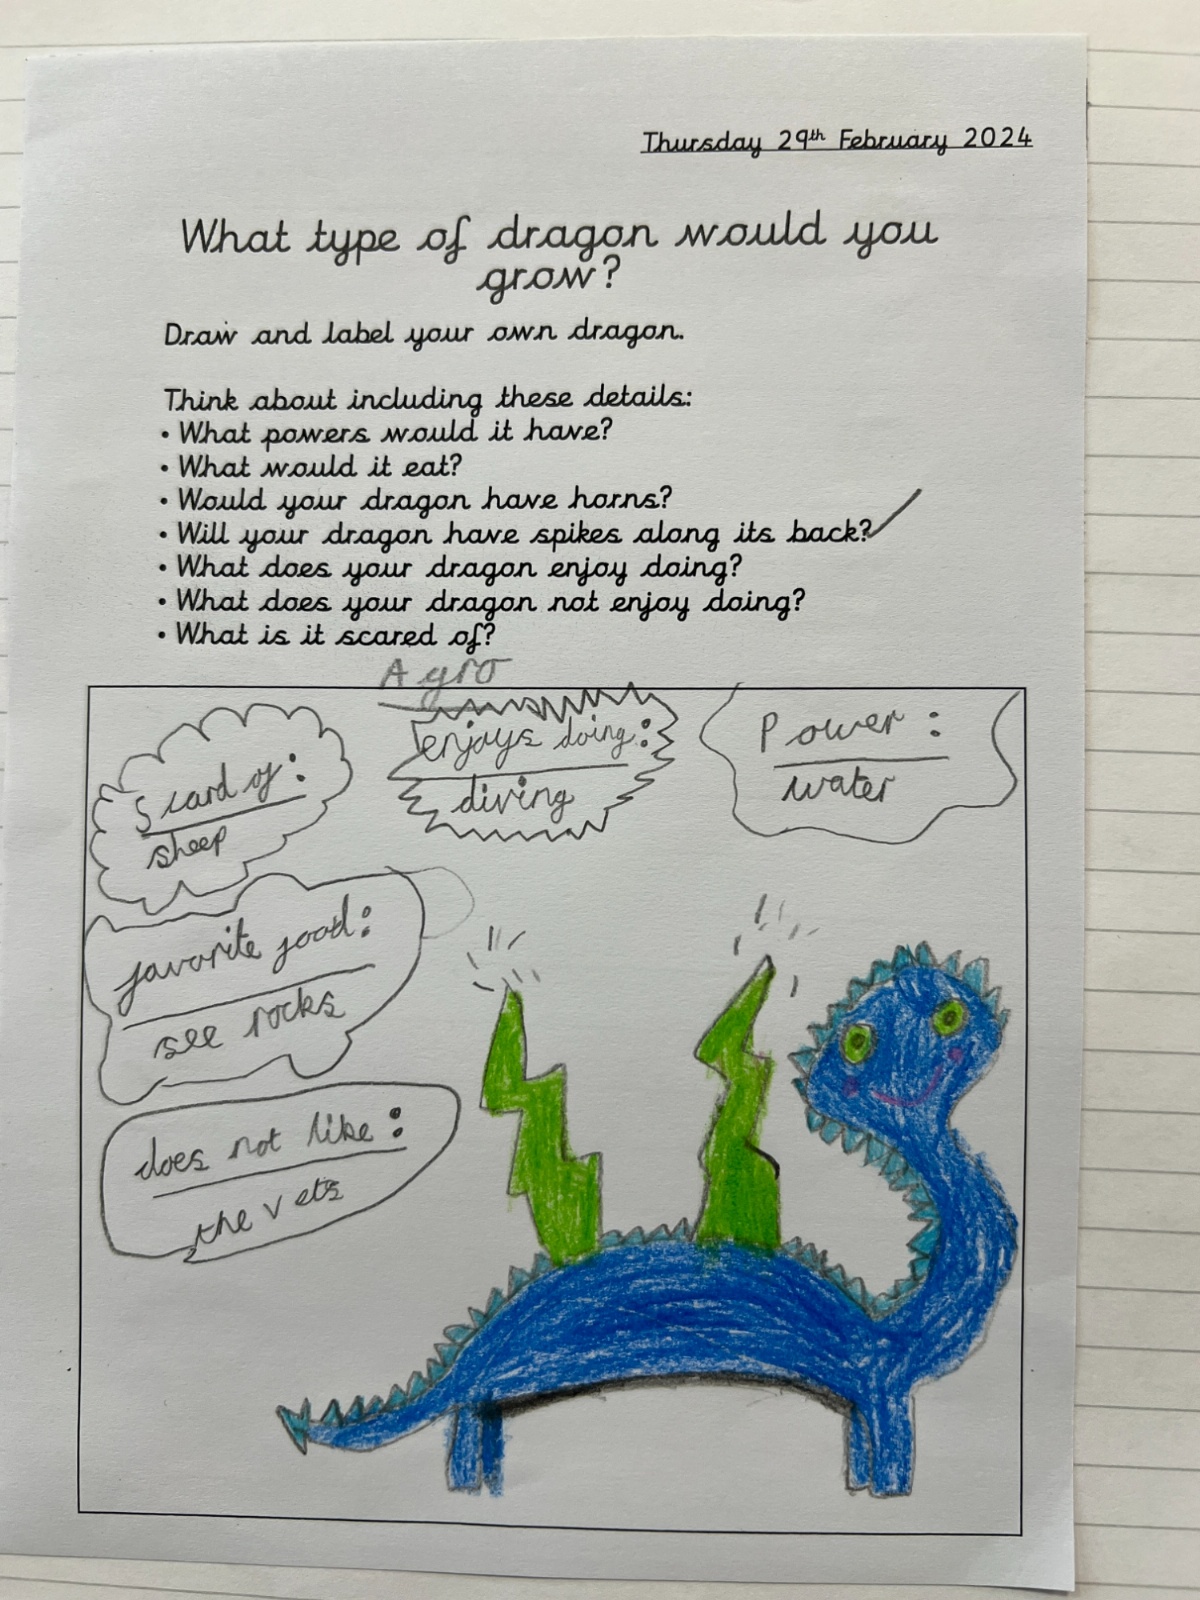 Thursday 29th February 2024
What type of dragon would you
grow?
Draw and label your own dragon.
Think about including these details:
• What powers would it have?
• What would it eat?
• Would your dragon have horns?
• Will your dragon have spikes along its back?
• What does your dragon enjoy doing?
• What does your dragon not enjoy doing?
• What is it scared of?
Agro
Scard of:
sheep
enjoys doing:
diving
Power:
water
favorite food:
see rocks
does not like:
the vets